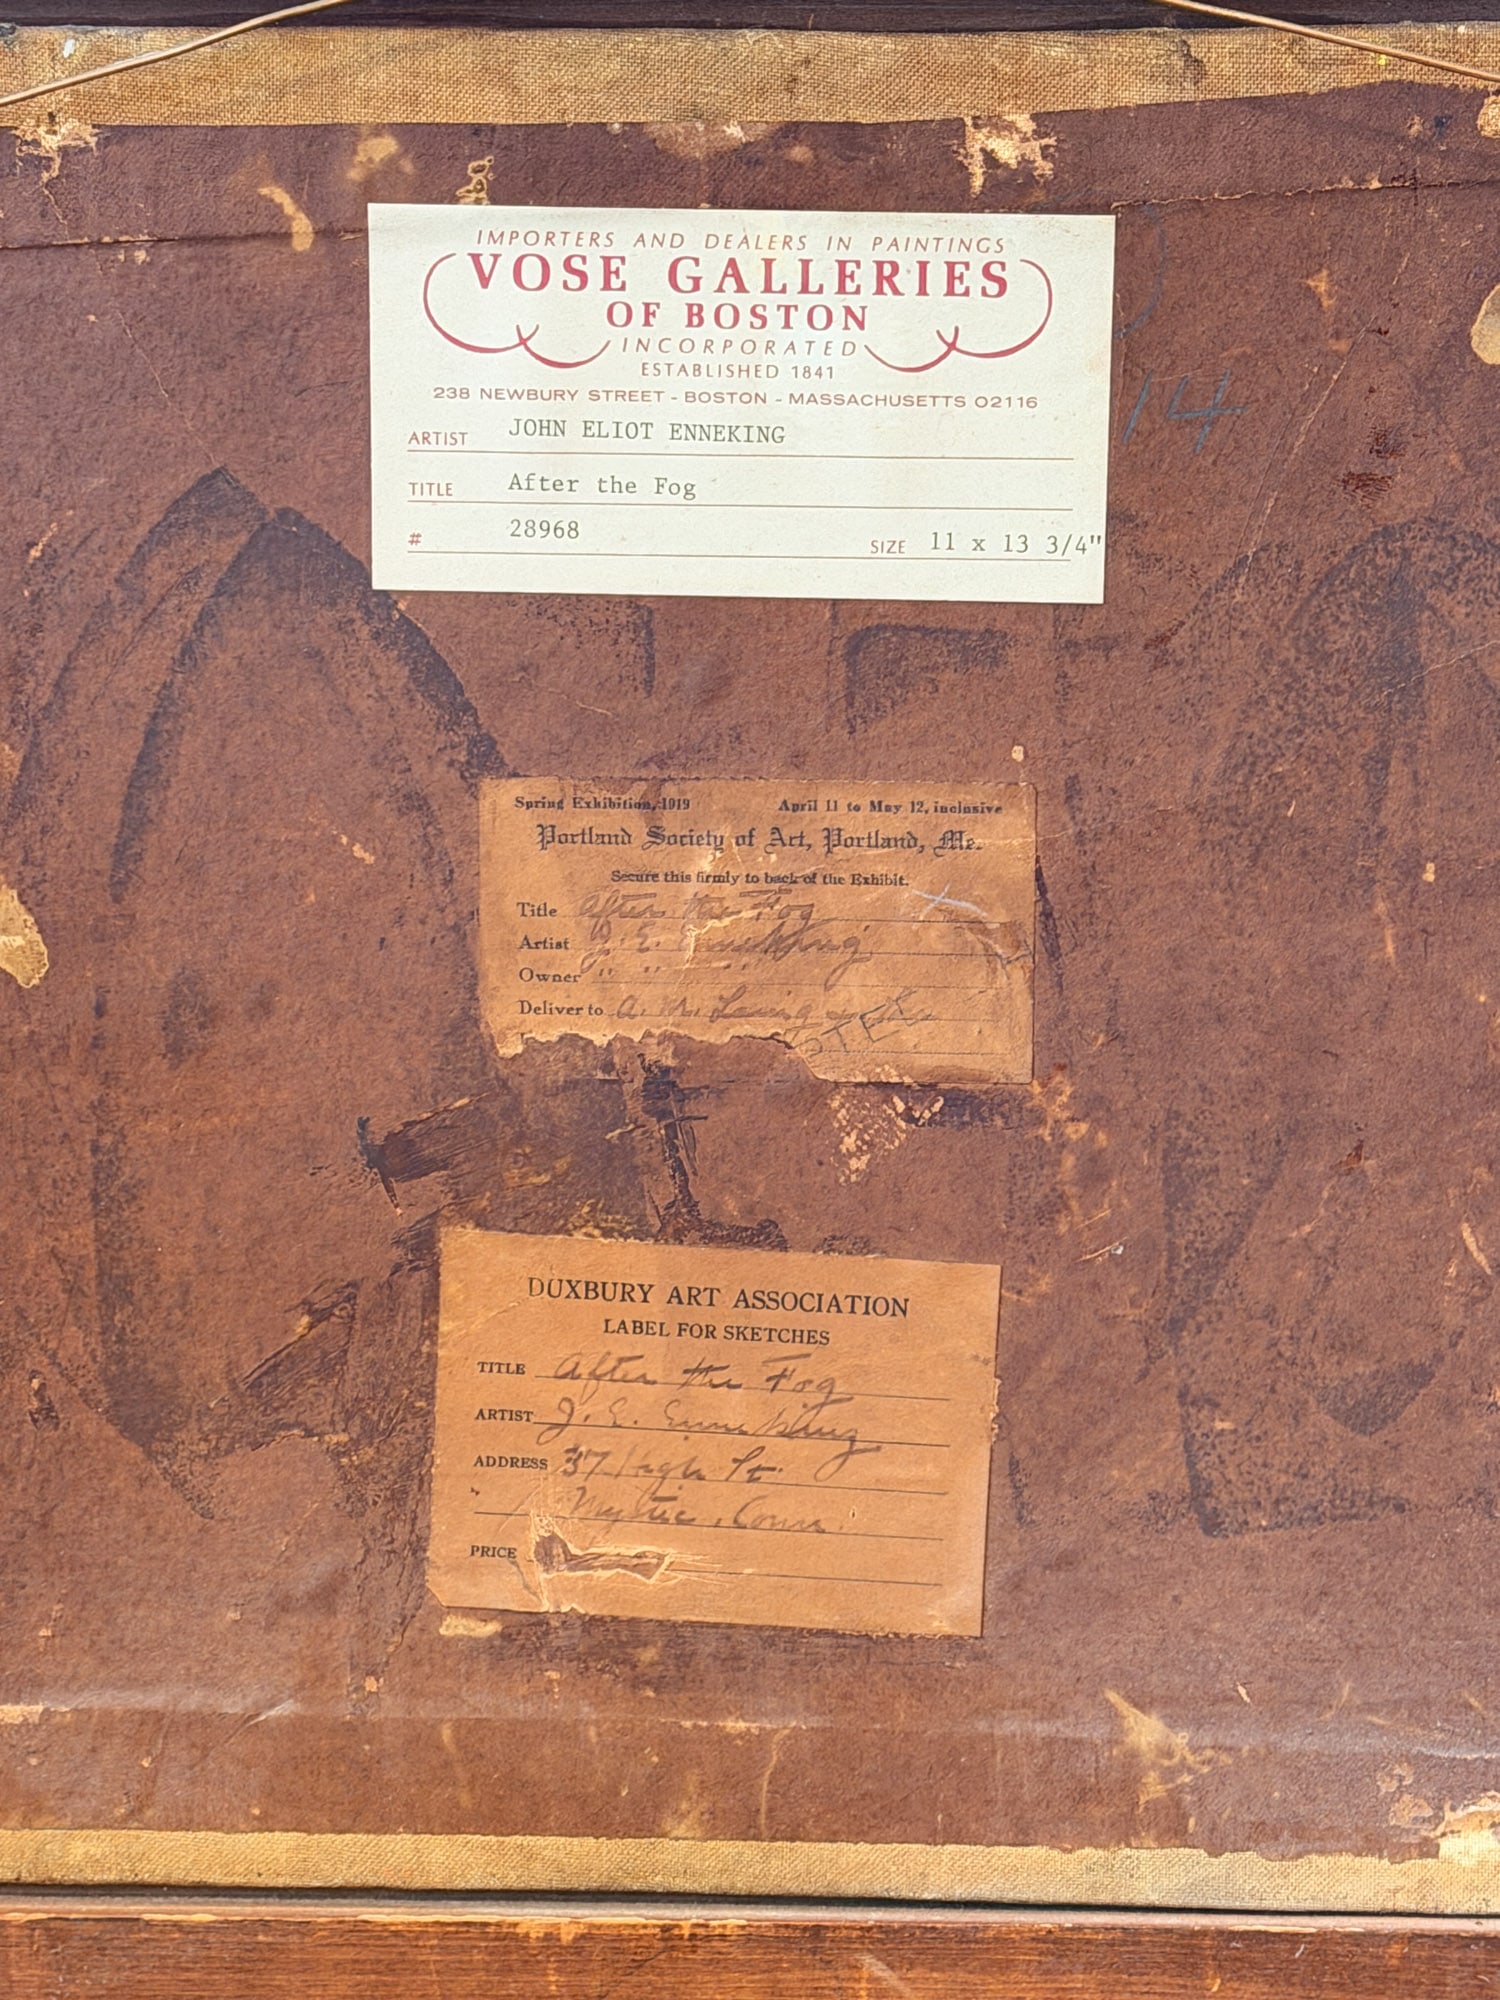 IMPORTERS AND DEALERS IN PAINTINGS
VOSE GALLERIES
OF BOSTON
INCORPORATED
ESTABLISHED 1841
238 NEWBURY STREET - BOSTON - MASSACHUSETTS 02116
ARTIST JOHN ELIOT ENNEKING
TITLE After the Fog
# 28968 SIZE 11 x 13 3/4"
14
Spring Exhibition, 1919 April 11 to May 12, inclusive
Portland Society of Art, Portland, Me.
Secure this firmly to back of the Exhibit.
Title After the Fog
Artist J. E. Enneking
Owner " " "
Deliver to A. M.
DUXBURY ART ASSOCIATION
LABEL FOR SKETCHES
TITLE After the Fog
ARTIST J. E. Enneking
ADDRESS 37 High St.
Mystic, Conn.
PRICE